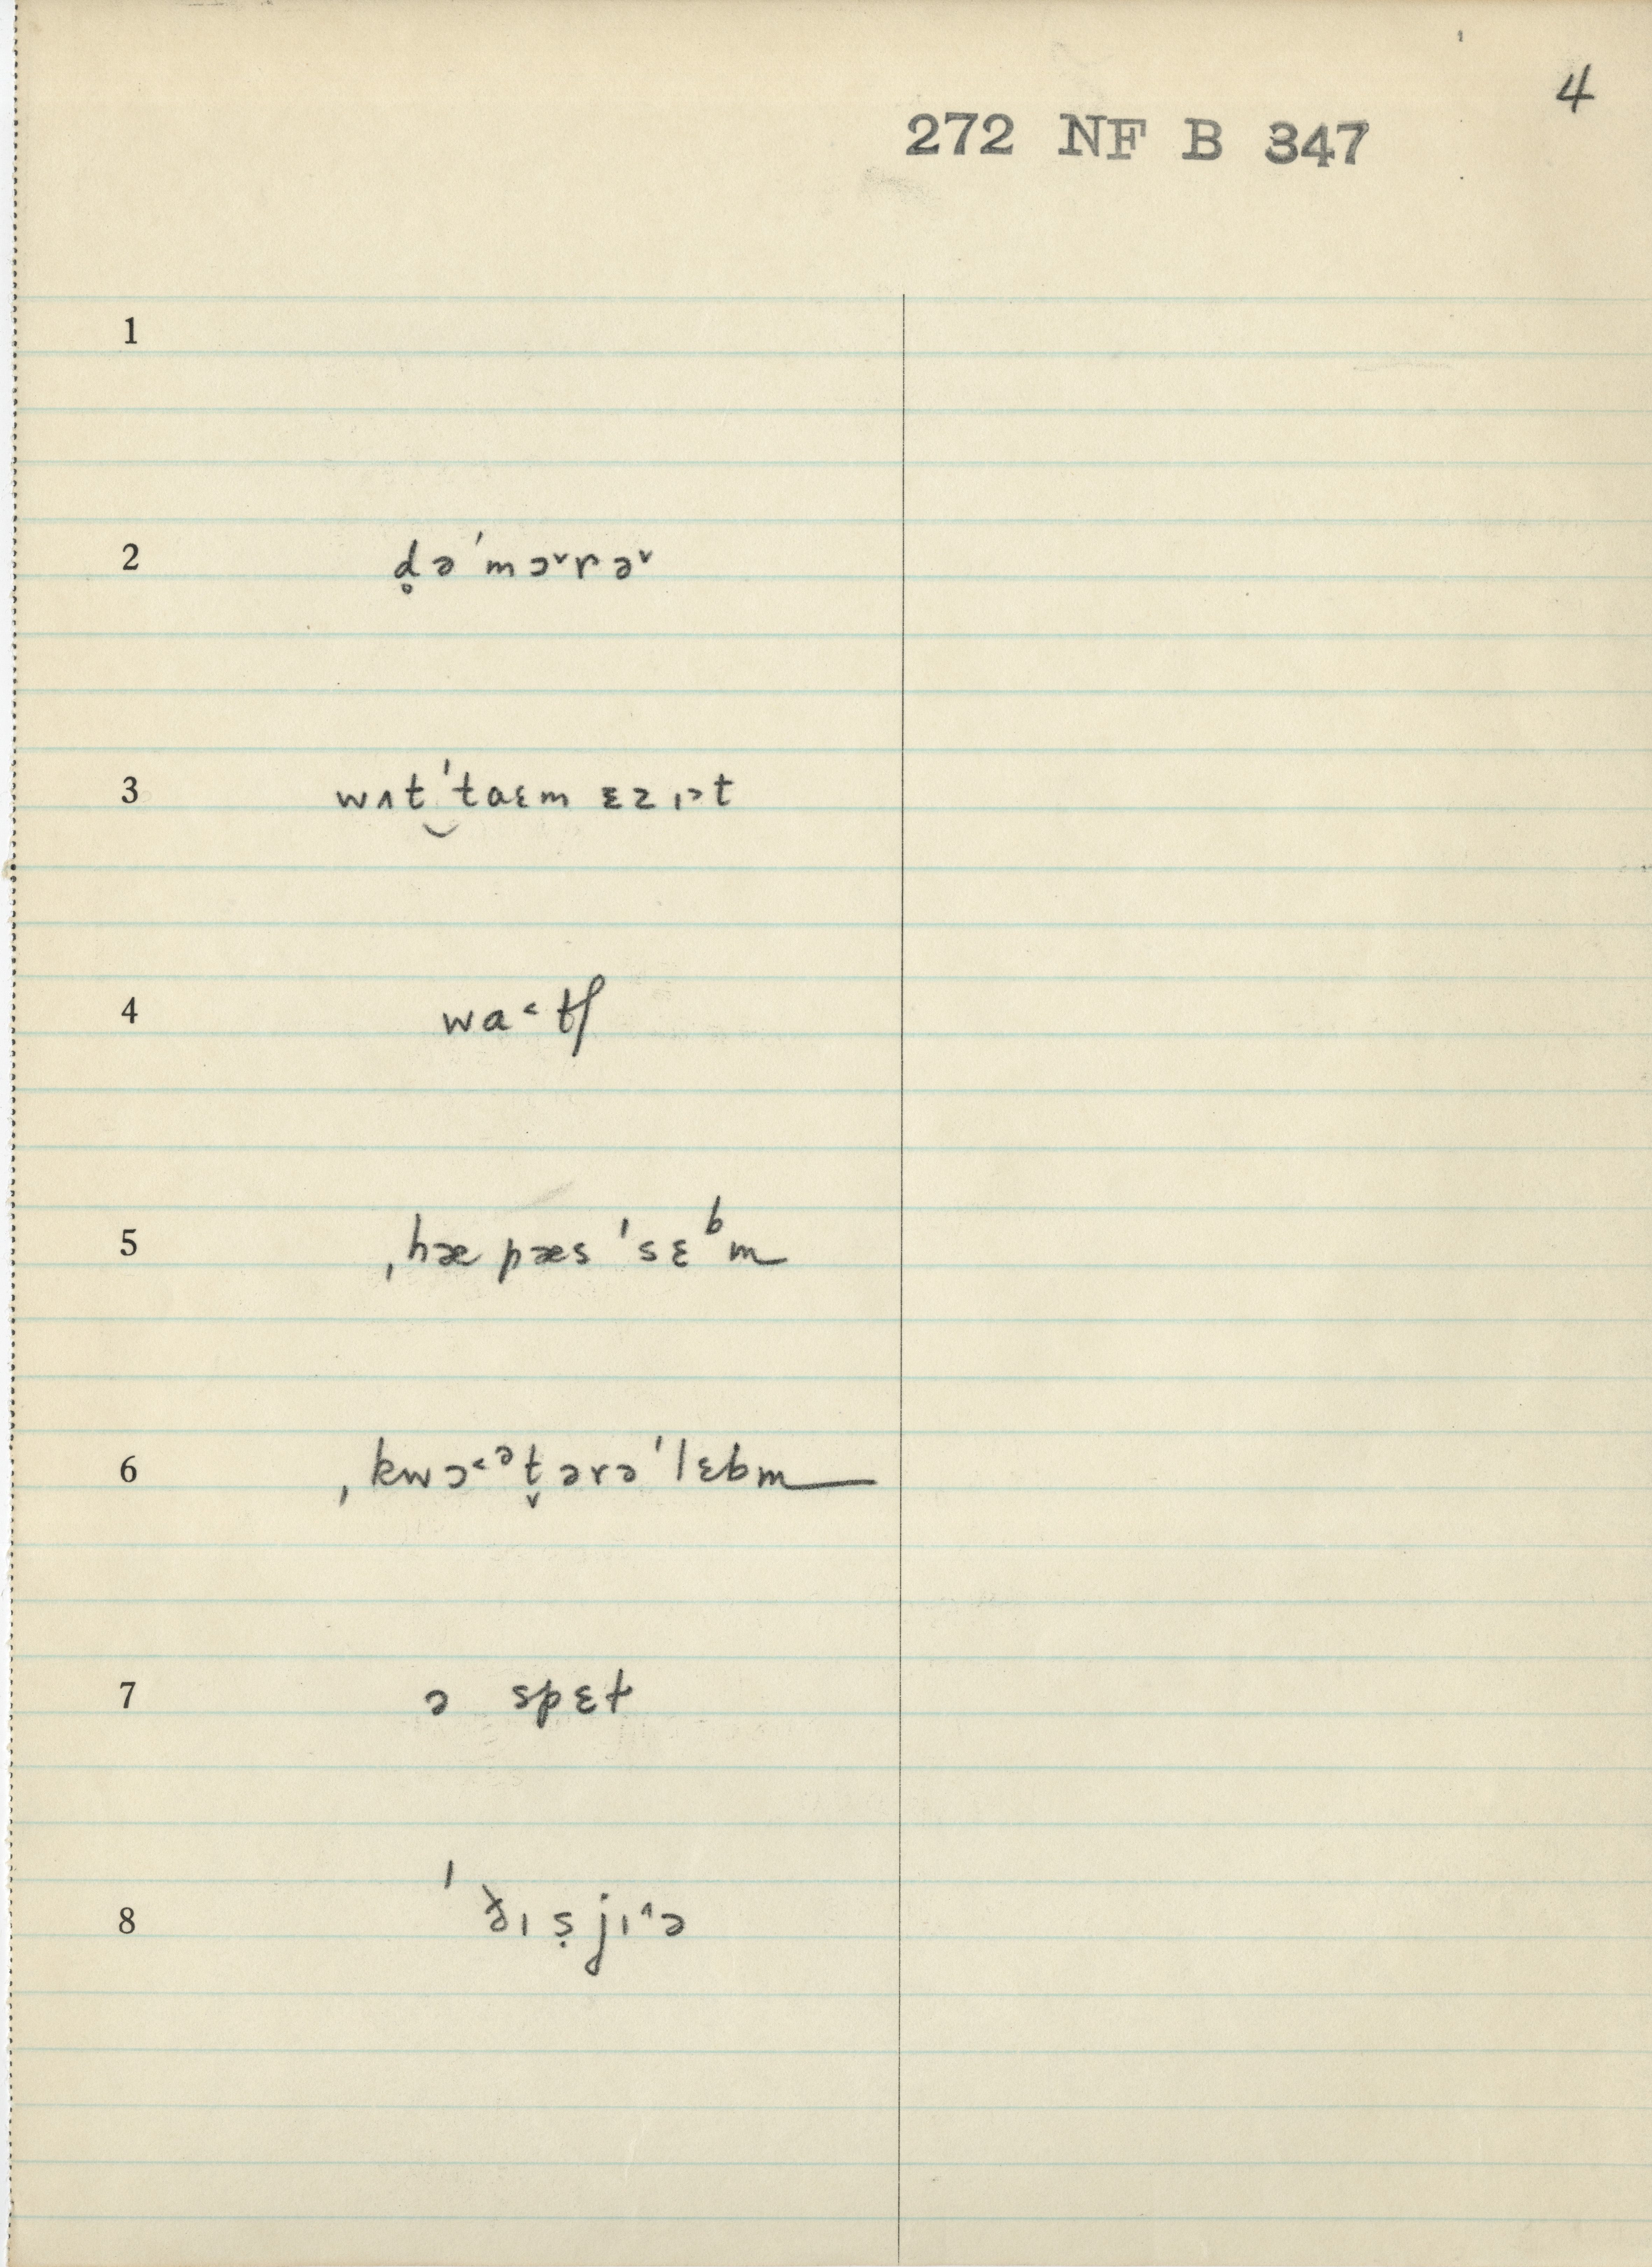 4
272 NF B 347
1
2 d̥əˈmɔ˅rə˅
3 wʌt‿ˈtaɛm ɛz ɪ˃t
4 wa˂tʃ
5 ˌhæ pæs ˈsɛᵇm
6 ˌkwɔ˂ᵊt̬ərəˈlɛbm
7 ə spɛt
8 ˈðɪ ṣjɪ˄ə